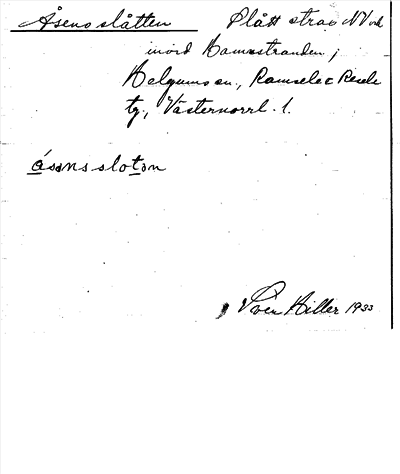 Åsensslåtten Slått strax NV och
invid Hamnstranden;
Helgums sn., Ramsele o Resele
tg., Västernorrl. l.
åsənsslotən
Sven Hiller 1933